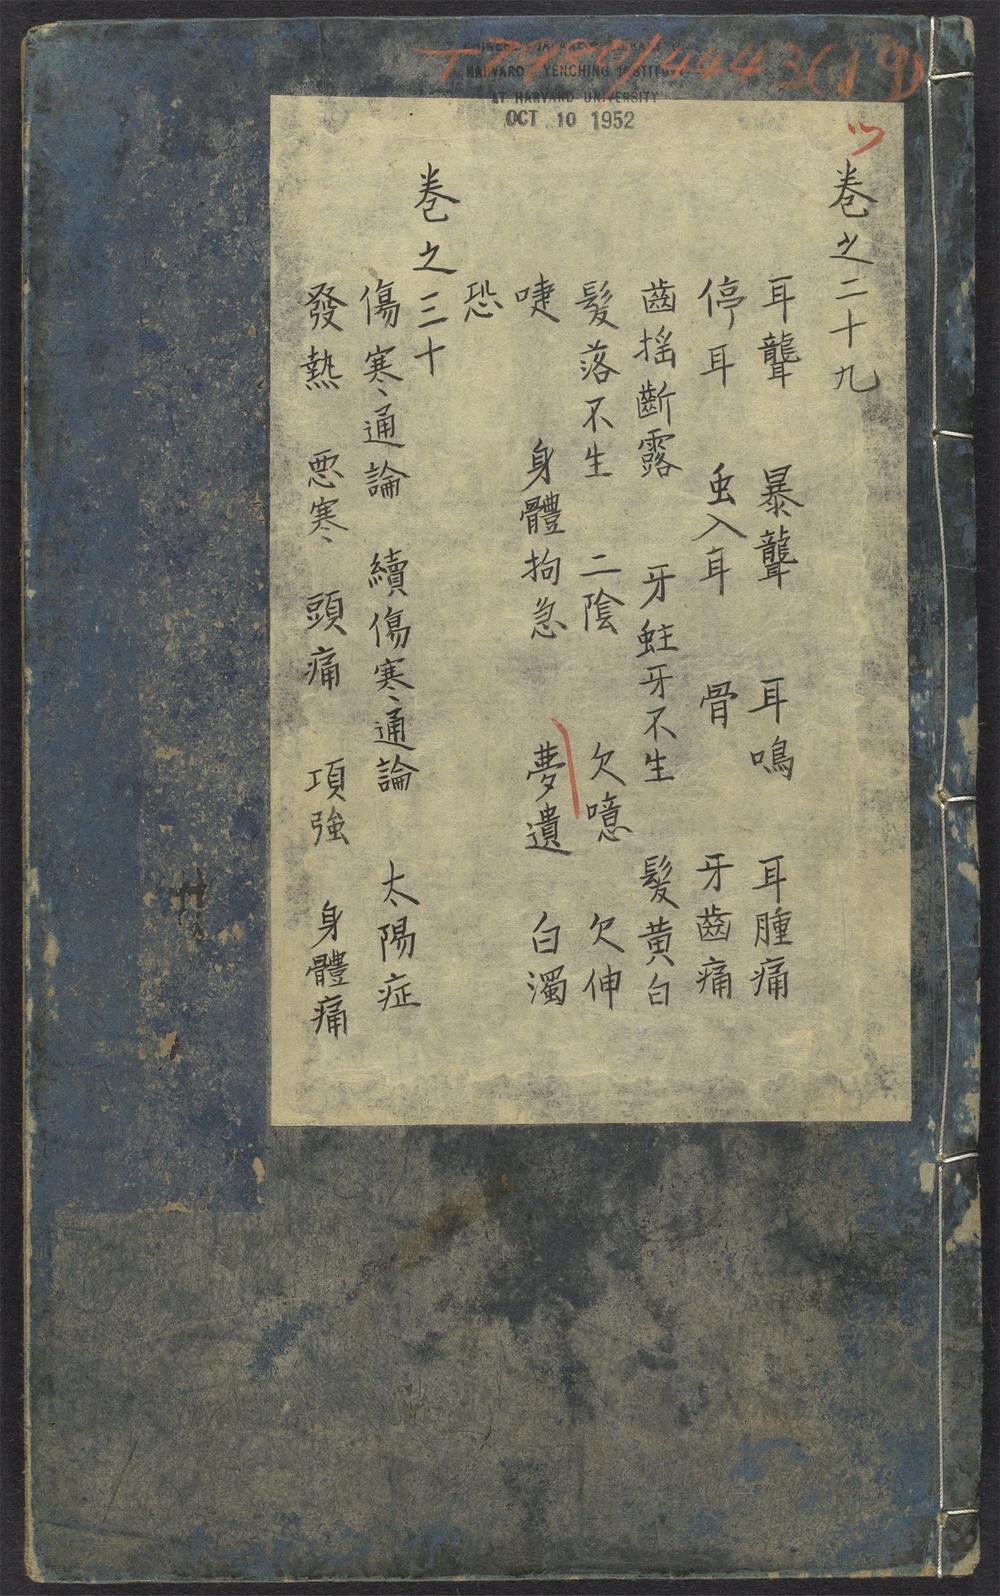 CHINESE JAPANESE LIBRARY OF
HARVARD YENCHING INSTITUTE
AT HARVARD UNIVERSITY
OCT 10 1952
4443(19)
卷之二十九
耳聾 暴聾 耳鳴 耳腫痛
停耳 虫入耳 骨 牙齒痛
齒搖齗露 牙蛀牙不生 髮黃白
髮落不生 二陰 欠噫 欠伸
啑 身體拘急 夢遺 白濁
恐
卷之三十
傷寒通論 續傷寒通論 太陽症
發熱 惡寒 頭痛 項強 身體痛